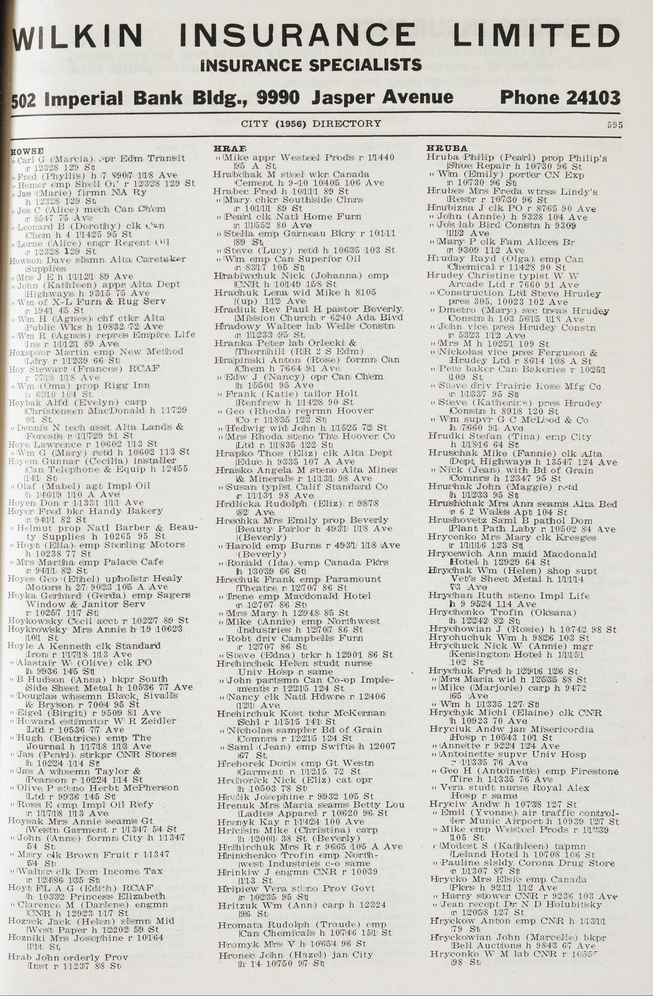 WILKIN INSURANCE LIMITED
INSURANCE SPECIALISTS
502 Imperial Bank Bldg., 9990 Jasper Avenue Phone 24103
CITY (1956) DIRECTORY 595
HOWSE
" Carl G (Marcia) opr Edm Transit
r 12328 129 St
" Fred (Phyllis) h 118 Ave
" Homer emp Shell Oil r 12328 129 St
" Jas (Marie) firmn NA Ry
h 12328 129 St
" Jos C (Alice) mech Can Chem
r 8547 75 Ave
" Leonard B (Dorothy) clk Cwn
Chem h 4 11425 95 St
" Lorne (Alice) engr Regent Oil
r 12328 129 St
Howson Dave slsmn Alta Caretaker
Supplies
" Mrs J E h 11121 89 Ave
" John (Kathleen) appr Alta Dept
Highways h 9815 75 Ave
" Wm of N-L Furn & Rug Serv
r 1941 45 St
" Wm H (Agnes) chf ctkr Alta
Public Wks h 10832 72 Ave
" Wm R (Agnes) repres Empire Life
Ins r 11121 89 Ave
Hoxspor Martin emp New Method
Ldry r 11239 66 St
Hoy Stewart (Frances) RCAF
r 7718 118 Ave
" Wm (Oma) prop Rigg Inn
h 6210 104 St
Hoybak Alfd (Evelyn) carp
Christensen MacDonald h 11729
91 St
" Dennis N tech asst Alta Lands &
Forests r 11729 91 St
Hoye Lawrence r 10602 113 St
" Wm G (Mary) retd h 10602 113 St
Hoyem Gunnar (Cecilia) installer
Can Telephone & Equip h 12455
141 St
" Olaf (Mabel) agt Impl Oil
h 14619 110 A Ave
Hoyen Don r 11331 111 Ave
Hoyer Fred bkr Handy Bakery
r 9411 82 St
" Helmut prop Natl Barber & Beau-
ty Supplies h 10265 95 St
" Hoyt (Ella) emp Sterling Motors
h 10238 77 St
" Mrs Martha emp Palace Cafe
r 9411 82 St
Hoyes Geo (Ethel) upholstr Healy
Motors h 27 9023 105 A Ave
Hoyka Gerhard (Gerda) emp Sagers
Window & Janitor Serv
r 10257 117 St
Hoykowsky Cecil acct r 10227 89 St
Hoykrowsky Mrs Annie h 19 10623
101 St
Hoyle A Kenneth clk Standard
Iron r 11718 113 Ave
" Alastair W (Olive) clk PO
h 9936 145 St
" B Hudson (Anna) bkpr South
Side Sheet Metal h 10536 77 Ave
" Douglas whsemn Black, Sivalls
& Bryson r 7004 95 St
" Eigel (Birgit) r 9509 81 Ave
" Howard estimator W R Zeidler
Ltd r 10536 77 Ave
" Hugh (Beatrice) emp The
Journal h 11718 113 Ave
" Jas (Pearl) strkpr CNR Stores
h 10224 114 St
" Jas A whsemn Taylor &
Pearson r 10224 114 St
" Olive P steno Herbt McPherson
Ltd r 9936 145 St
" Ross E emp Impl Oil Refy
r 11718 113 Ave
Hoysak Mrs Annie seams Gt
Western Garment r 11347 54 St
" John (Annie) formn City h 11347
54 St
" Mary clk Brown Fruit r 11347
54 St
" Walter clk Dom Income Tax
r 12486 135 St
Hoyt FL A G (Edith) RCAF
h 10332 Princess Elizabeth
" Clarence M (Darlene) engmn
CNR h 12923 117 St
Hozack Jack (Helen) slsmn Mid
West Paper h 12202 59 St
Hozniki Mrs Josephine r 10164
114 St
Hrab John orderly Prov
Inst r 11237 88 St
HRAE
" Mike appr Westeel Prods r 11440
95 A St
Hrabchak M steel wkr Canada
Cement h 9-10 10405 106 Ave
Hrabec Fred h 10111 89 St
" Mary chkr Southside Clnrs
r 10111 89 St
" Pearl clk Natl Home Furn
r 11552 80 Ave
" Stella emp Garneau Bkry r 10111
89 St
" Steve (Lucy) retd h 10635 103 St
" Wm emp Can Superior Oil
r 8317 105 St
Hrabiwchuk Nick (Johanna) emp
CNR h 10149 158 St
Hrachuk Lena wid Mike h 8105
(up) 112 Ave
Hradiuk Rev Paul H pastor Beverly
Mission Church r 6240 Ada Blvd
Hradowy Walter lab Wells Constn
r 11253 95 St
Hranka Peter lab Orlecki &
Thornhill (RR 2 S Edm)
Hrapinski Anton (Rose) formn Can
Chem h 7664 91 Ave
" Edw J (Nancy) opr Can Chem
h 15501 95 Ave
" Frank (Katie) tailor Holt
Renfrew h 11428 90 St
" Geo (Rhoda) reprmn Hoover
Co r 11835 122 St
" Hedwig wid John h 11525 72 St
" Mrs Rhoda steno The Hoover Co
Ltd r 11835 122 St
Hrapko Thos (Eliz) clk Alta Dept
Educ h 9335 107 A Ave
Hrasko Angela M steno Alta Mines
& Minerals r 11131 98 Ave
" Susan typist Calif Standard Co
r 11131 98 Ave
Hrdlicka Rudolph (Eliz) r 9878
82 Ave
Hrechka Mrs Emily prop Beverly
Beauty Parlor h 4931 118 Ave
(Beverly)
" Harold emp Burns r 4931 118 Ave
(Beverly)
" Ronald (Ida) emp Canada Pkrs
h 13039 66 St
Hrechuk Frank emp Paramount
Theatre r 12707 86 St
" Irene emp Macdonald Hotel
r 12707 86 St
" Mrs Mary h 12948 85 St
" Mike (Annie) emp Northwest
Industries h 12707 86 St
" Robt driv Campbells Furn
r 12707 86 St
" Steve (Edna) trkr h 12901 86 St
Hrehirchek Helen studt nurse
Univ Hosp r same
" John partsmn Can Co-op Imple-
ments r 12215 124 St
" Nancy clk Natl Hdwre r 12406
121 Ave
Hrehirchuk Kost tchr McKernan
Schl r 11515 141 St
" Nicholas sampler Bd of Grain
Comnrs r 12215 124 St
" Saml (Jean) emp Swifts h 12007
67 St
Hrehorek Doris emp Gt Westn
Garment r 11215 72 St
Hrehorick Nick (Eliz) cat opr
h 10503 78 St
Hrelik Josephine r 9932 105 St
Hrenuk Mrs Maria seams Betty Lou
Ladies Apparel r 10620 96 St
Hrenyk Kay r 11424 100 Ave
Hricisin Mike (Christina) carp
h 12001 38 St (Beverly)
Hrihirchuk Mrs R r 9665 105 A Ave
Hrinichenko Trofin emp North-
west Industries c-o same
Hrinkiw J engmn CNR r 10039
113 St
Hripiew Vera steno Prov Govt
r 10235 95 St
Hritzuk Wm (Ann) carp h 12324
96 St
Hromata Rudolph (Traude) emp
Can Chemicals h 10746 151 St
Hromyk Mrs V h 10654 96 St
Hronec John (Hazel) jan City
h 14 10750 97 St
HRUBA
Hruba Philip (Pearl) prop Philip's
Shoe Repair h 10730 96 St
" Wm (Emily) porter CN Exp
r 10730 96 St
Hrubes Mrs Freda wtrss Lindy's
Restr r 10730 96 St
Hrubizna J clk PO r 8765 90 Ave
" John (Annie) h 9338 104 Ave
" Jo's lab Bird Constn h 9309
112 Ave
" Mary P clk Fam Allces Br
r 9309 112 Ave
Hruday Rayd (Olga) emp Can
Chemical r 11428 90 St
Hrudey Christine typist W W
Arcade Ltd r 7660 91 Ave
" Construction Ltd Steve Hrudey
pres 305, 10023 102 Ave
" Dmetro (Mary) sec treas Hrudey
Constn h 103 5615 118 Ave
" John vice pres Hrudey Constn
r 5323 112 Ave
" Mrs M h 10251 109 St
" Nickolas vice pres Ferguson &
Hrudey Ltd r 8614 108 A St
" Pete baker Can Bakeries r 10251
109 St
" Steve driv Prairie Rose Mfg Co
r 11337 95 St
" Steve (Katherine) pres Hrudey
Constn h 8918 120 St
" Wm supvr G C McLeod & Co
h 7660 91 Ave
Hrudki Stefan (Tina) emp City
h 11816 64 St
Hruschak Mike (Fannie) clk Alta
Dept Highways h 13547 124 Ave
" Nick (Jean) with Bd of Grain
Comnrs h 12347 95 St
Hrushak John (Maggie) retd
h 11233 95 St
Hrushchak Mrs Ann seams Alta Bed
r 6 2 Wales Apt 104 St
Hrushovetz Saml B pathol Dom
Plant Path Laby r 10502 84 Ave
Hrycenko Mrs Mary clk Kresges
r 11116 123 St
Hrycewich Ann maid Macdonald
Hotel h 12929 64 St
Hrychak Wm (Helen) shop supt
Vet's Sheet Metal h 11114
73 Ave
Hrychan Ruth steno Impl Life
h 9 9524 114 Ave
Hrychenko Trofin (Oksana)
h 12242 82 St
Hrychowian J (Rosie) h 10742 98 St
Hrychuchuk Wm h 9826 103 St
Hrychuck Nick W (Annie) mgr
Kensington Hotel h 11151
102 St
Hrychuk Fred h 12916 126 St
" Mrs Maria wid h 12535 88 St
" Mike (Marjorie) carp h 9472
65 Ave
" Wm h 11335 127 St
Hrychyk Michl (Elaine) clk CNR
h 10923 70 Ave
Hryciuk Andw jan Misericordia
Hosp r 10543 101 St
" Annette r 9224 124 Ave
" Antoinette supvr Univ Hosp
r 11335 76 Ave
" Geo H (Antoinette) emp Firestone
Tire h 11335 76 Ave
" Vera studt nurse Royal Alex
Hosp r same
Hryciw Andw h 10738 127 St
" Emil (Yvonne) air traffic control-
ler Munic Airport h 10939 127 St
" Mike emp Westeel Prods r 11239
105 St
" Modest S (Kathleen) tapmn
Leland Hotel h 10708 106 St
" Pauline slsldy Corona Drug Store
r 11307 87 St
Hrycko Mrs Elsie emp Canada
Pkrs h 9211 112 Ave
" Harry stower CNR r 9236 103 Ave
" Jean recept Dr N D Holubitsky
r 12058 127 St
Hryckow Anton emp CNR h 11311
79 St
Hryckowian John (Marcelle) bkpr
Bell Auctions h 9843 67 Ave
Hryconko W M lab CNR r
98 St